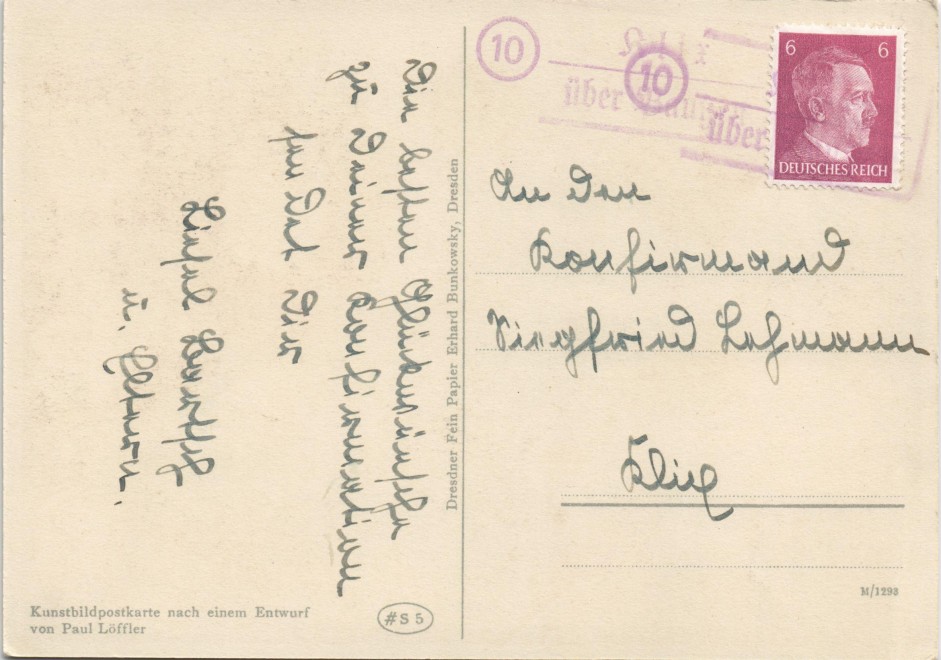 Die besten Glückwünsche
zu Deiner Konfirmation
sendet Dir
u. Eltern.
Kunstbildpostkarte nach einem Entwurf
von Paul Löffler
#S 5
Dresdner Fein Papier Erhard Bunkowsky, Dresden
10
Klix
10
über
über
6 6
DEUTSCHES REICH
An Den
Konfirmand
Siegfried Lehmann
Klix
M/1293